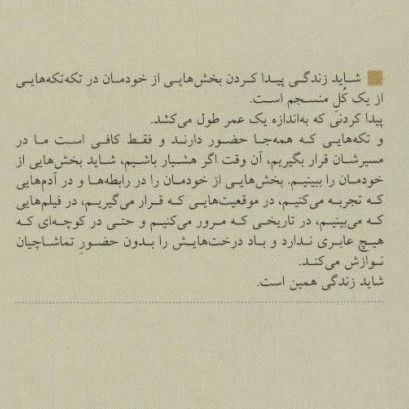 شاید زندگی پیدا کردن بخش‌هایی از خودمان در تکه‌تکه‌هایی
از یک کُلِ منسجم است.
پیدا کردنی که به‌اندازه یک عمر طول می‌کشد.
و تکه‌هایی که همه‌جا حضور دارند و فقط کافی است ما در
مسیرشان قرار بگیریم، آن وقت اگر هشیار باشیم، شاید بخش‌هایی از
خودمان را ببینیم. بخش‌هایی از خودمان را در رابطه‌ها و در آدم‌هایی
که تجربه می‌کنیم، در موقعیت‌هایی که قرار می‌گیریم، در فیلم‌هایی
که می‌بینیم، در تاریخی که مرور می‌کنیم و حتی در کوچه‌ای که
هیچ عابری ندارد و باد درخت‌هایش را بدون حضورِ تماشاچیان
نوازش می‌کند.
شاید زندگی همین است.